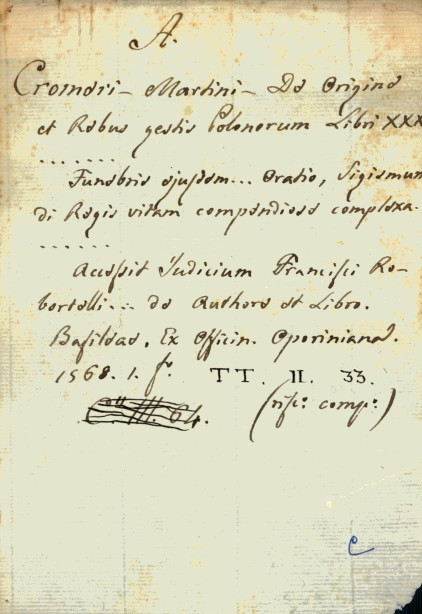 A.
Cromeri - Martini - De Origine
et Rebus gestis Polonorum Libri XXX
.......
Funebris ejusdem... Oratio, Sigismun
di Regis vitam compendiose complexa.
......
Accessit Judicium Francisci Ro-
bortelli... de Authore et Libro.
Basileae, Ex Officin. Oporiniana.
1568. 1. fo. TT. II. 33.
64. (risc. comp.)
C